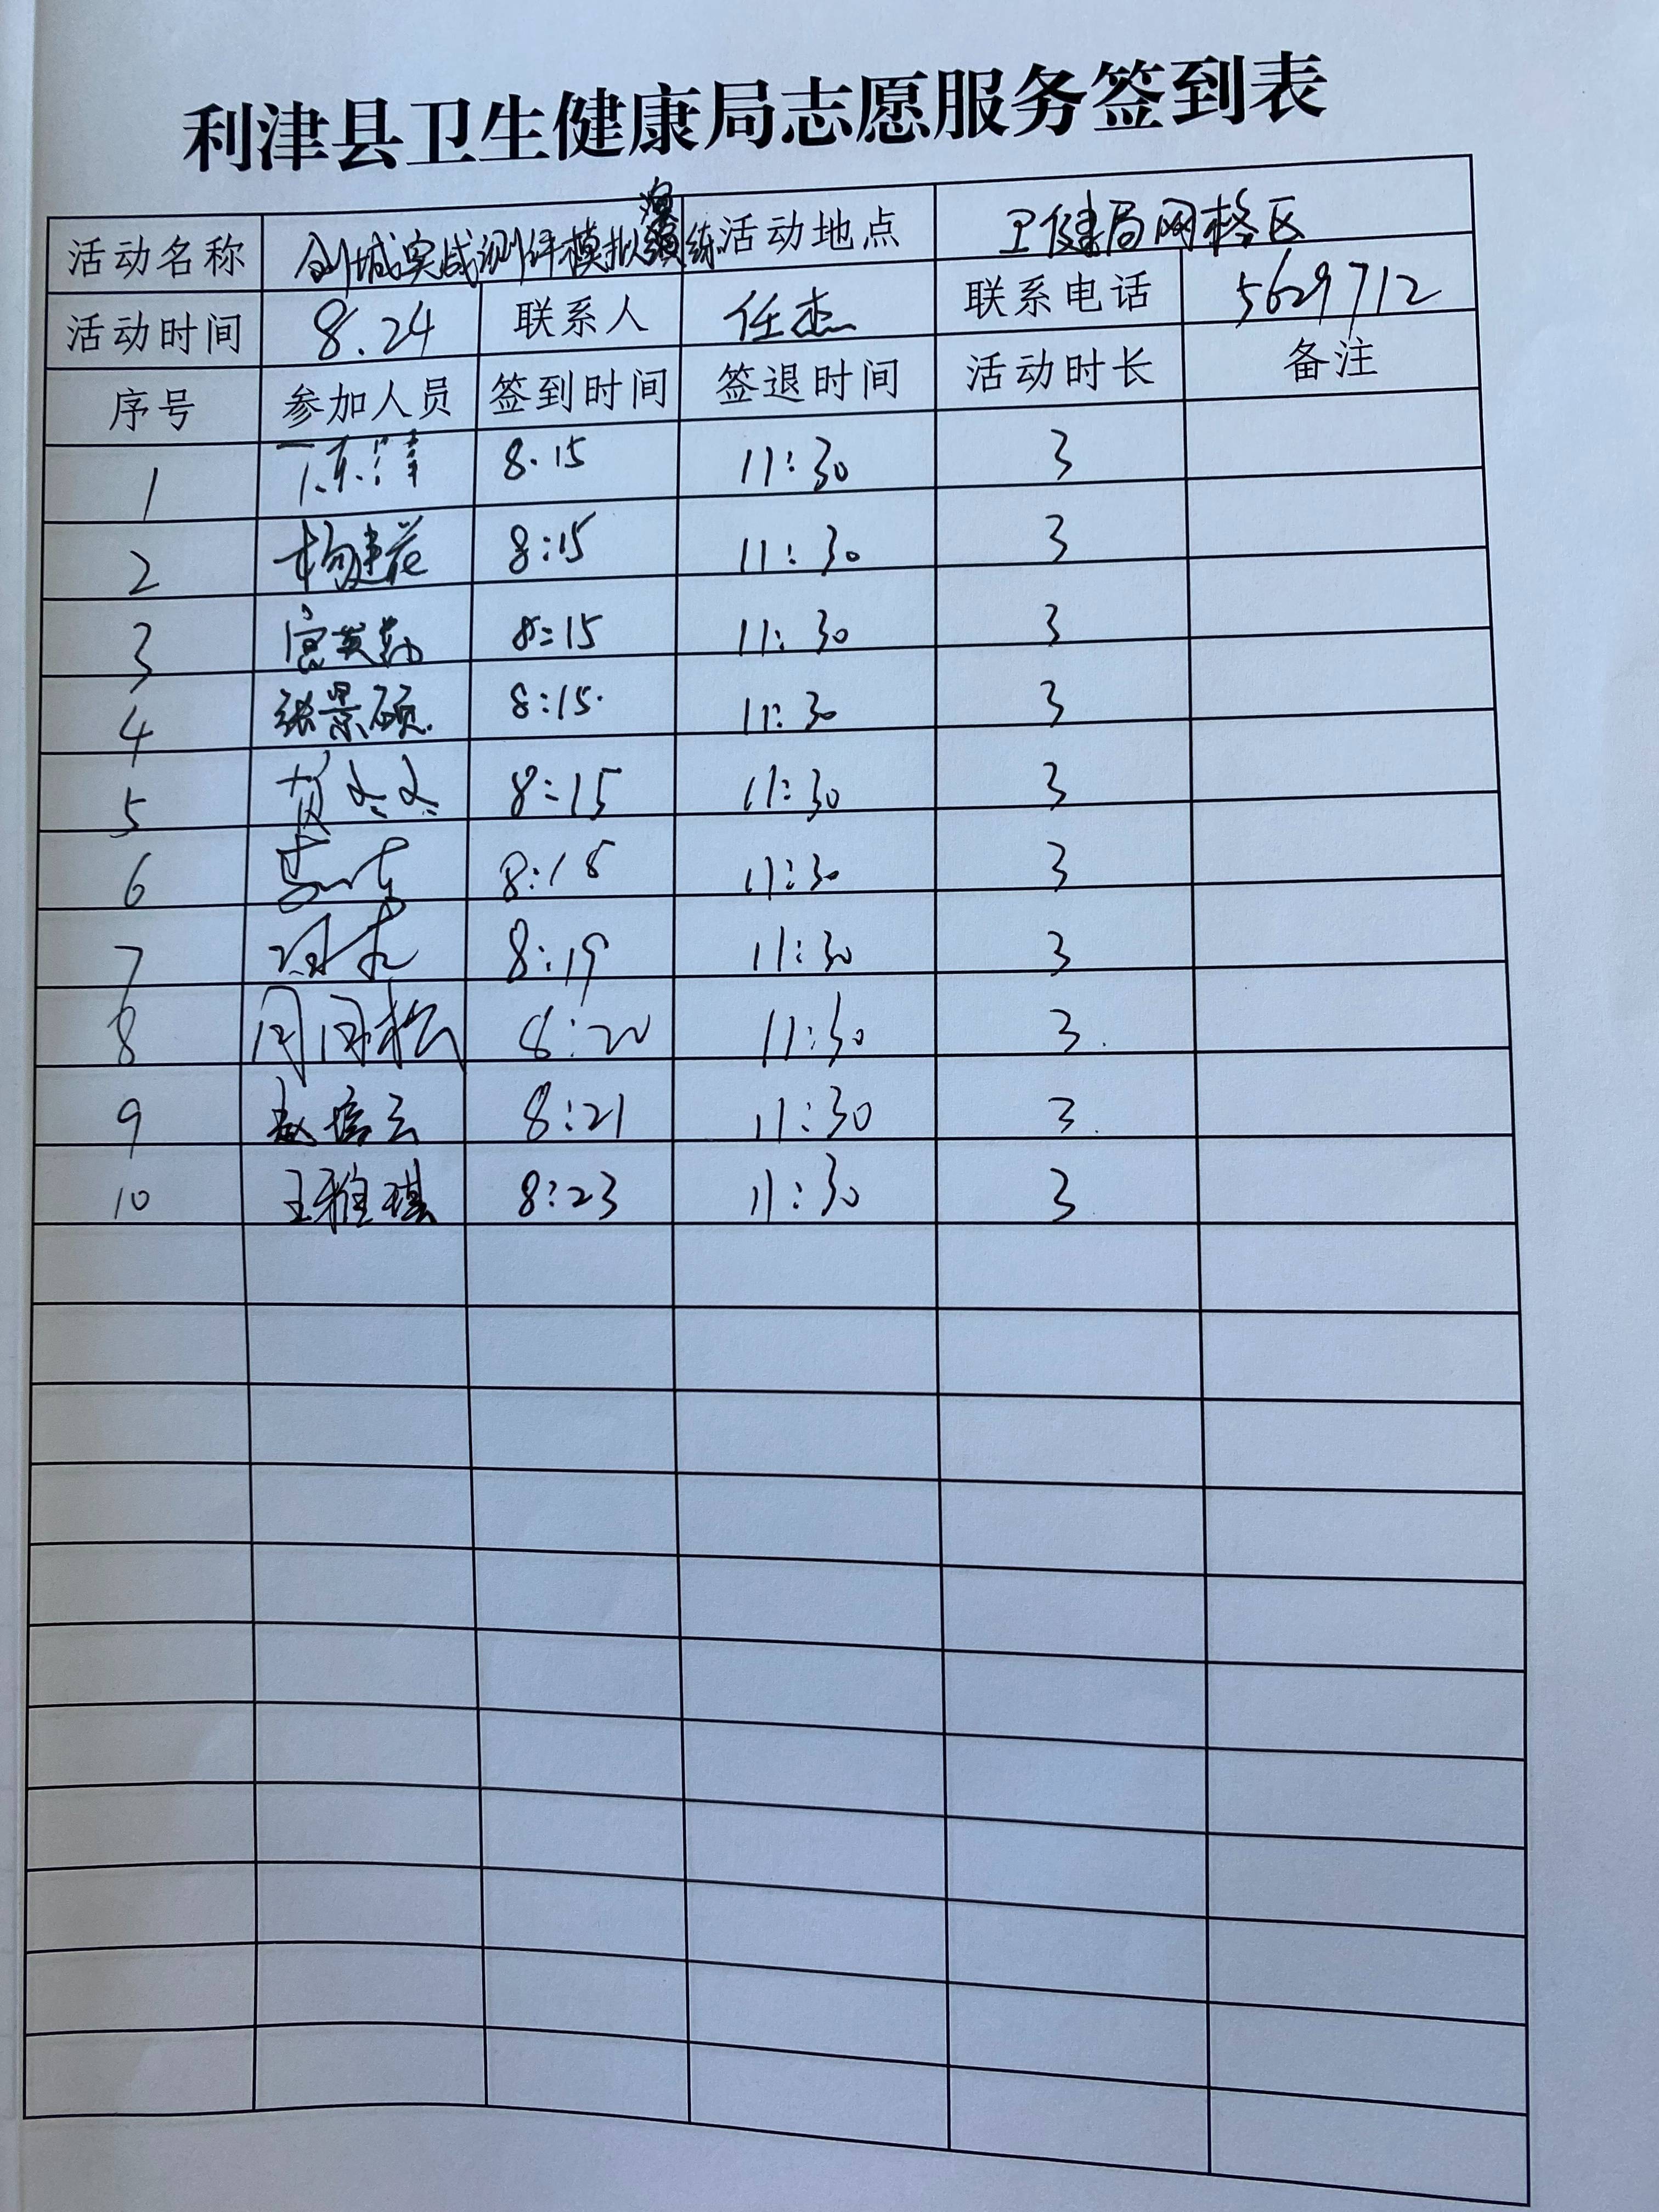 利津县卫生健康局志愿服务签到表
活动名称 创城实战测评模拟演练 活动地点 卫健局网格区
活动时间 8.24 联系人 任杰 联系电话 5629712
序号 参加人员 签到时间 签退时间 活动时长 备注
1 8.15 11:30 3
2 杨建花 8:15 11:30 3
3 8:15 11:30 3
4 张景硕 8:15 11:30 3
5 贺冬冬 8:15 11:30 3
6 8:18 11:30 3
7 8:19 11:30 3
8 周国松 8:20 11:30 3
9 赵培云 8:21 11:30 3
10 王雅琪 8:23 11:30 3